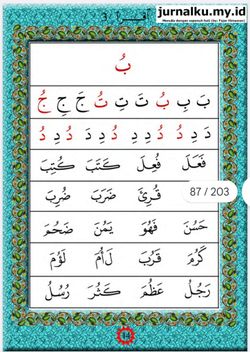 اقرأ . 3
jurnalku.my.id
Menulis dengan sepenuh hati (by: Fajar Himawan)
بُ
بَ بِ بُ تَ تِ تُ جَ جِ جُ
فَعَلَ فُعِلَ كَتَبَ كُتِبَ
قُرِئَ ضَرَبَ ضُرِبَ
87 / 203
حَسُنَ فَهُوَ يَمُنَ
كَرُمَ قَرُبَ لَؤُمَ
رَجُلُ عَظُمَ كَثُرَ رُسُلُ